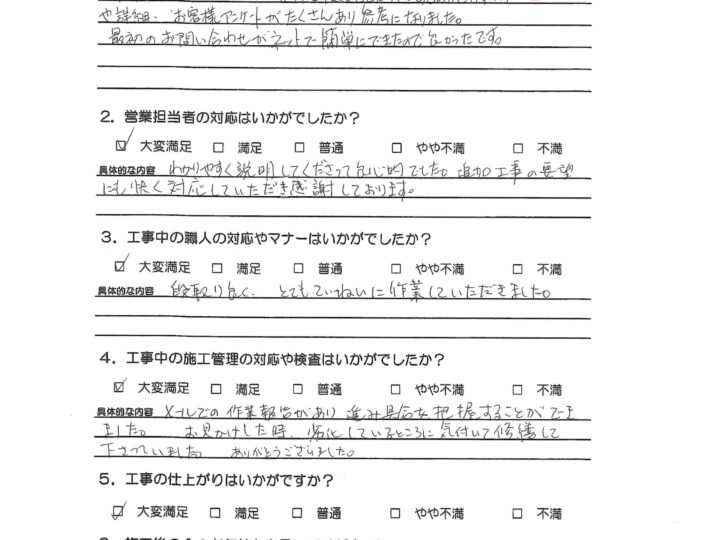 や詳細、お客様アンケートがたくさんあり参考になりました。
最初のお問い合わせがネットで簡単にできたので良かったです。
2. 営業担当者の対応はいかがでしたか?
☑ 大変満足 □ 満足 □ 普通 □ やや不満 □ 不満
具体的な内容 わかりやすく説明してくださって良心的でした。追加工事の要望
にも快く対応していただき感謝しております。
3. 工事中の職人の対応やマナーはいかがでしたか?
☑ 大変満足 □ 満足 □ 普通 □ やや不満 □ 不満
具体的な内容 段取り良く、とてもていねいに作業していただきました。
4. 工事中の施工管理の対応や検査はいかがでしたか?
☑ 大変満足 □ 満足 □ 普通 □ やや不満 □ 不満
具体的な内容 メールでの作業報告があり進み具合を把握することができ
ました。 お見かけした時、劣化しているところに気付いて修繕して
下さっていました。 ありがとうございました。
5. 工事の仕上がりはいかがですか?
☑ 大変満足 □ 満足 □ 普通 □ やや不満 □ 不満